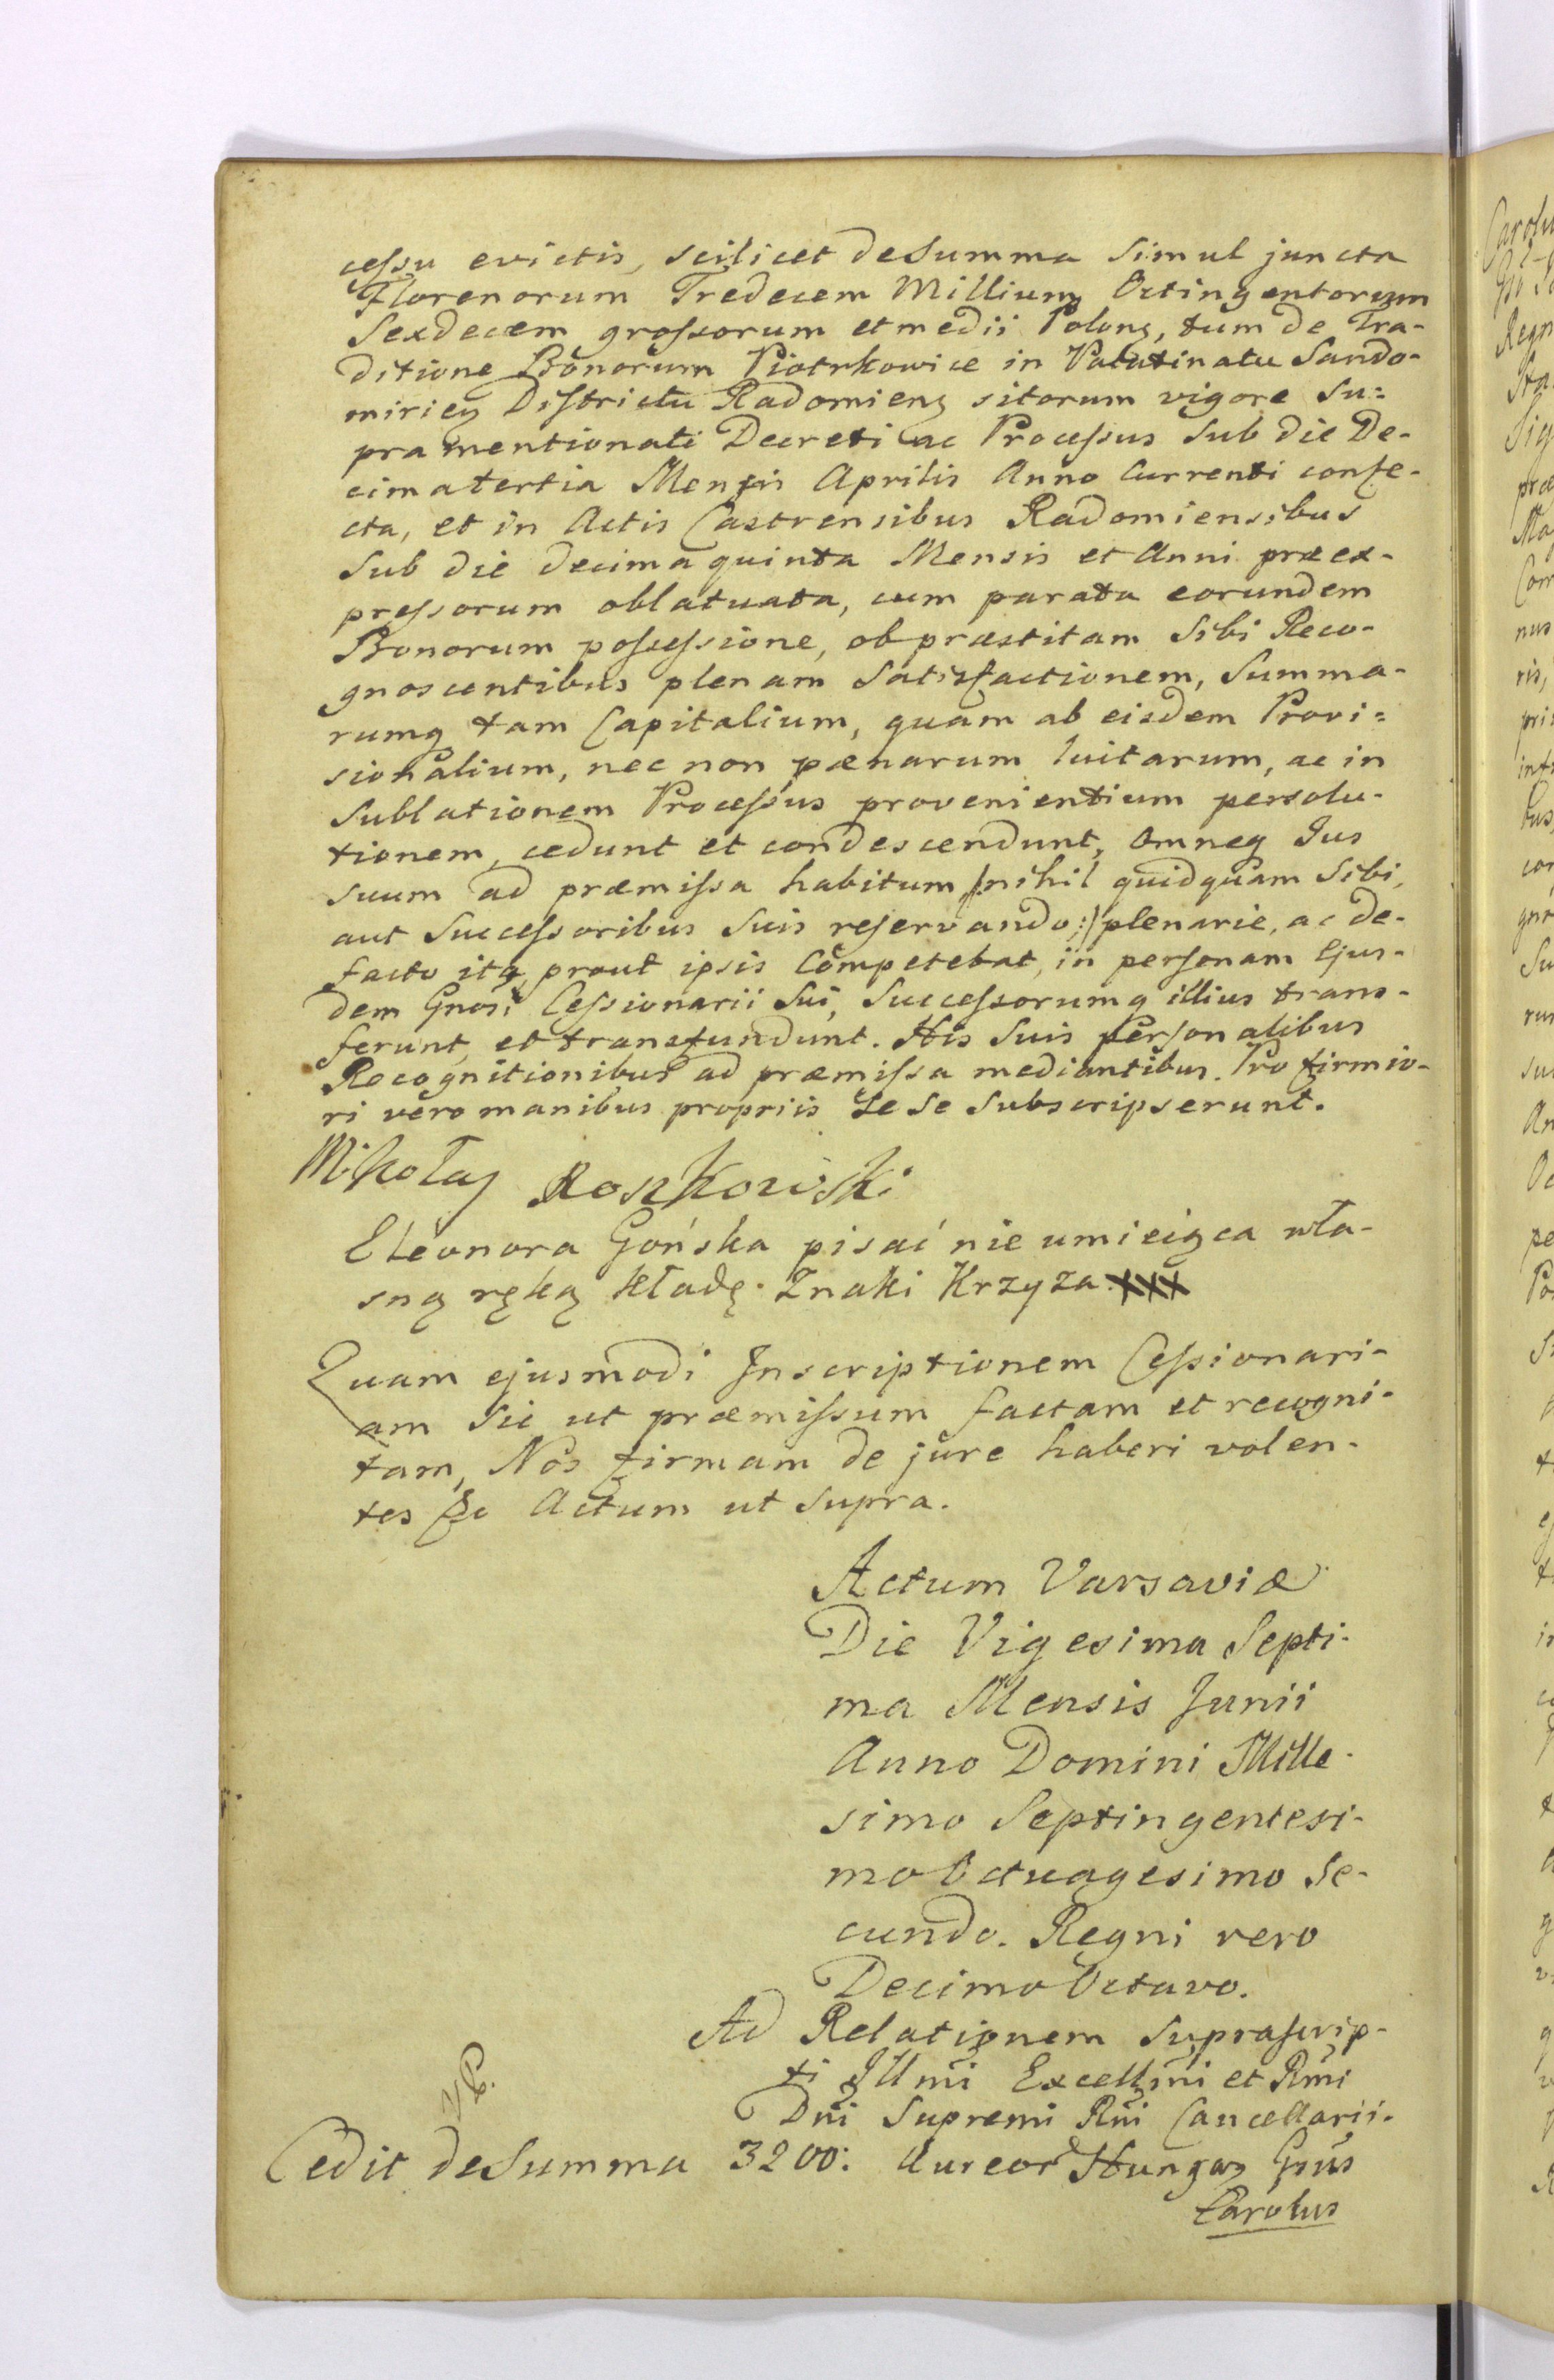 cessu evictis, scilicet de Summa Simul juncta
Florenorum Tredecem Millium Octingentorum
Sexdecem grossorum et medii Polonę, tum de Tra-
ditione Bonorum Piotrkowice in Palatinatu Sando-
mirień Districtu Radomienę sitorum vigore Su=
pra mentionati Decreti ac Processus Sub die De-
cima tertia Mensis Aprilis Anno Currenti confe-
cta, et in Actis Castrensibus Radomiensibus
Sub die decima quinta Mensis et Anni præex-
pressorum oblatuata, cum parata eorundem
Bonorum possessione, ob præstitam Sibi Reco-
gnoscentibus plenam Satisfactionem, Summa-
rumq tam Capitalium, quam ab eisdem Provi=
sionalium, nec non pænarum luitarum, ac in
Sublationem Processus provenientium persolu-
tionem, cedunt et condescendunt, Omneq Jus
suum ad præmissa habitum /:nihil quidquam Sibi,
aut Successoribus Suis reservando:/ plenarie, ac de-
facto itq prout ipsis Competebat, in personam Ejus-
dem Gnosi Cessionarii Sui, Successorumq illius trans-
ferunt, et transfundunt. His Suis Personalibus
Recognitionibus ad præmissa mediantibus. Pro firmio-
ri vero manibus propriis Se Se Subscripserunt.
Mikołaj Roszkowski
Eleonora Gońska pisać nie umieiąca wła-
sną ręką kładę Znaki Krzyza xxx
Quam ejusmodi Inscriptionem Cessionari-
am Sic ut præmissum factam et recogni-
tam, Nos firmam de jure haberi volen-
tes &c Actum ut supra.
Actum Varsaviæ
Die Vigesima Septi-
ma Mensis Junii
Anno Domini Mille-
simo Septingentesi-
mo Octuagesimo Se-
cundo. Regni vero
Decimo Octavo.
Ad Relationem Suprascrip-
ti Illmi Excellmi et Rmi
Dni Supremi Rni Cancellarii.
Cedit de Summa 3200: Aureor Hungar Gnus
Carolus